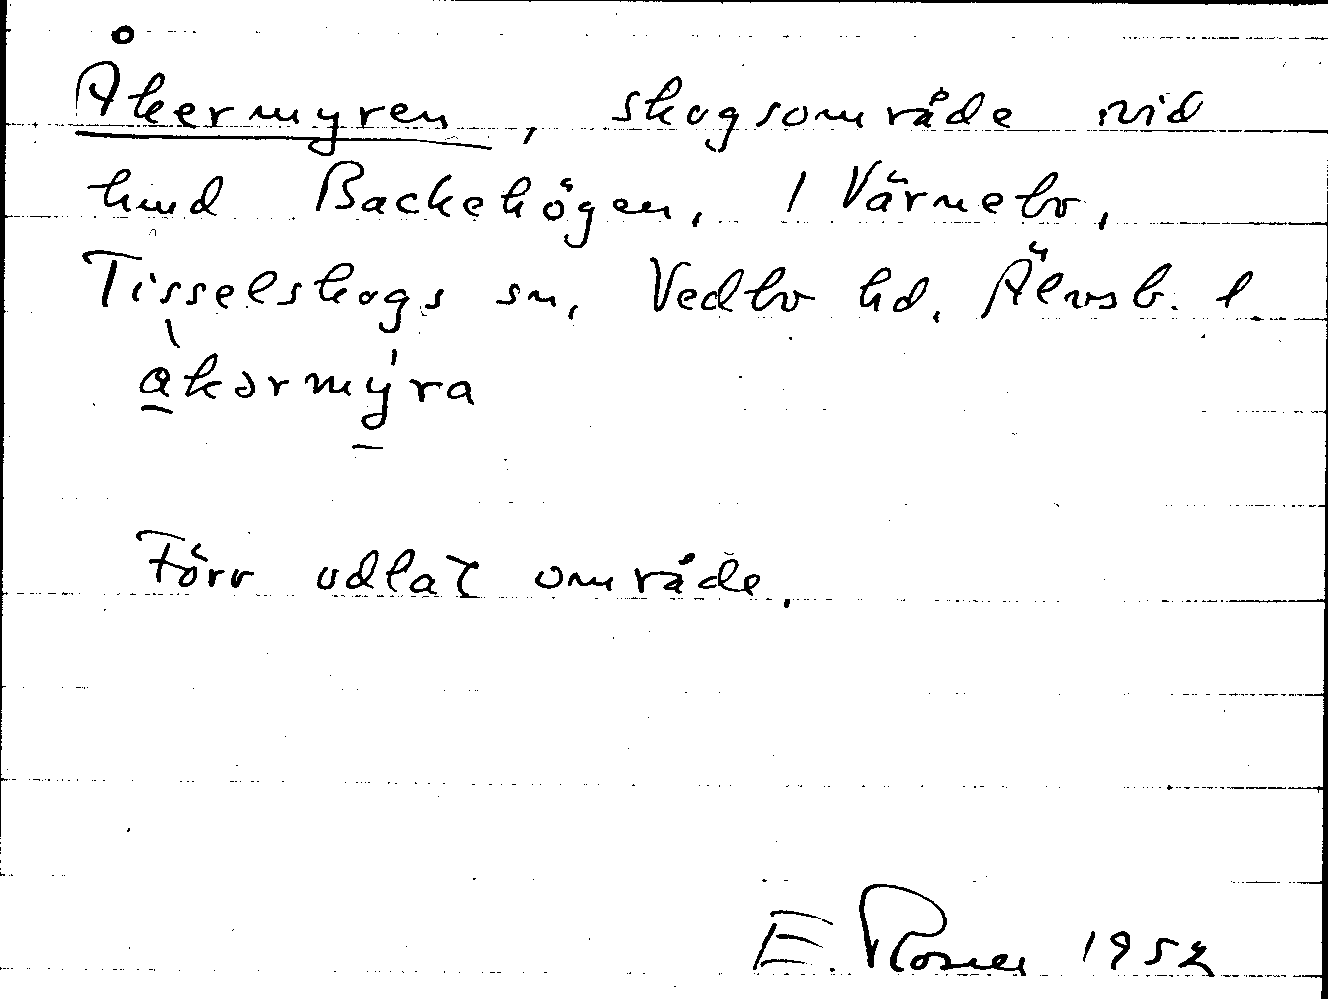 Åkermyren, skogsområde vid
hmd Backehögen, 1 Värnebo,
Tisselskogs sn, Vedbo hd. Älvsb. l.
åkərmýra
Förr odlat område.
E. Rosell 1952